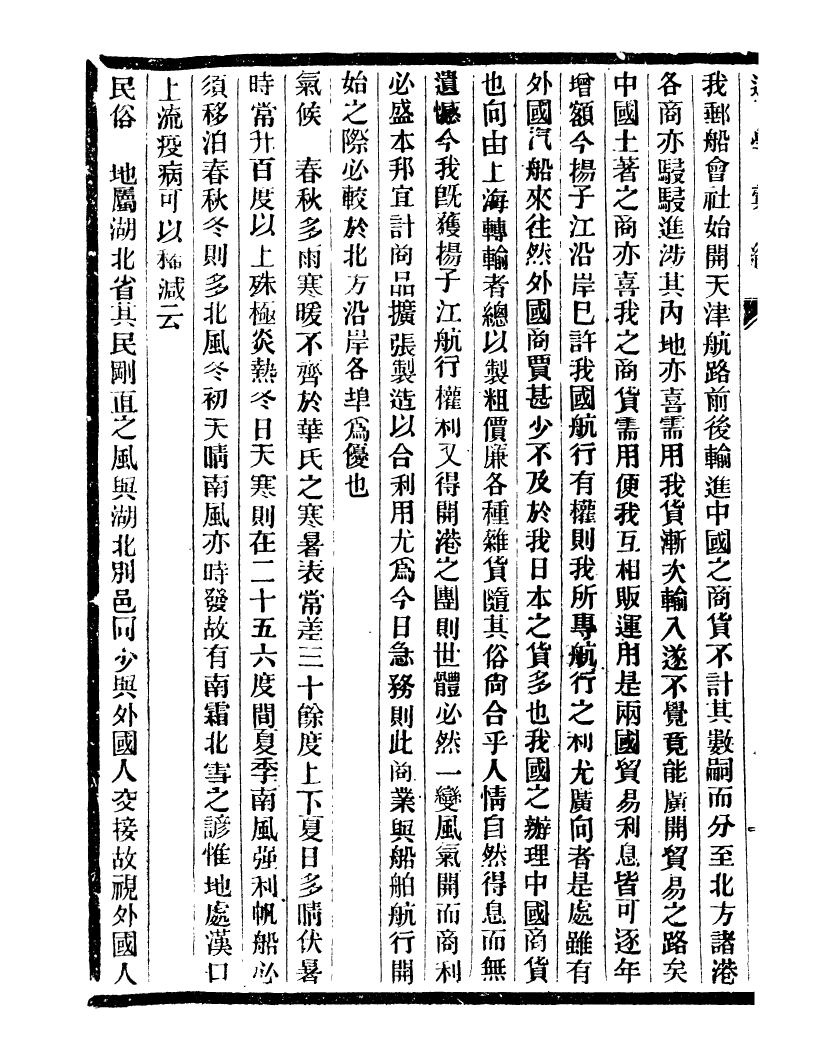 我郵船會社始開天津航路前後輸進中國之商貨不計其數嗣而分至北方諸港
各商亦駸駸進涉其內地亦喜需用我貨漸次輸入遂不覺竟能廣開貿易之路矣
中國土著之商亦喜我之商貨需用便我互相販運用是兩國貿易利息皆可逐年
增額今揚子江沿岸巳許我國航行有權則我所專航行之利尤廣向者是處雖有
外國汽船來往然外國商賈甚少不及於我日本之貨多也我國之辦理中國商貨
也向由上海轉輸者總以製粗價廉各種雜貨隨其俗尙合乎人情自然得息而無
遺憾今我旣獲揚子江航行權利又得開港之團則世體必然一變風氣開而商利
必盛本邦宜計商品擴張製造以合利用尤爲今日急務則此商業與船舶航行開
始之際必較於北方沿岸各埠爲優也
氣候　春秋多雨寒暖不齊於華氏之寒暑表常差三十餘度上下夏日多晴伏暑
時常升百度以上殊極炎熱冬日天寒則在二十五六度間夏季南風强利帆船必
須移泊春秋冬則多北風冬初天晴南風亦時發故有南霜北雪之諺惟地處漢口
上流疫病可以稀減云
民俗　地屬湖北省其民剛直之風與湖北別邑同少與外國人交接故視外國人